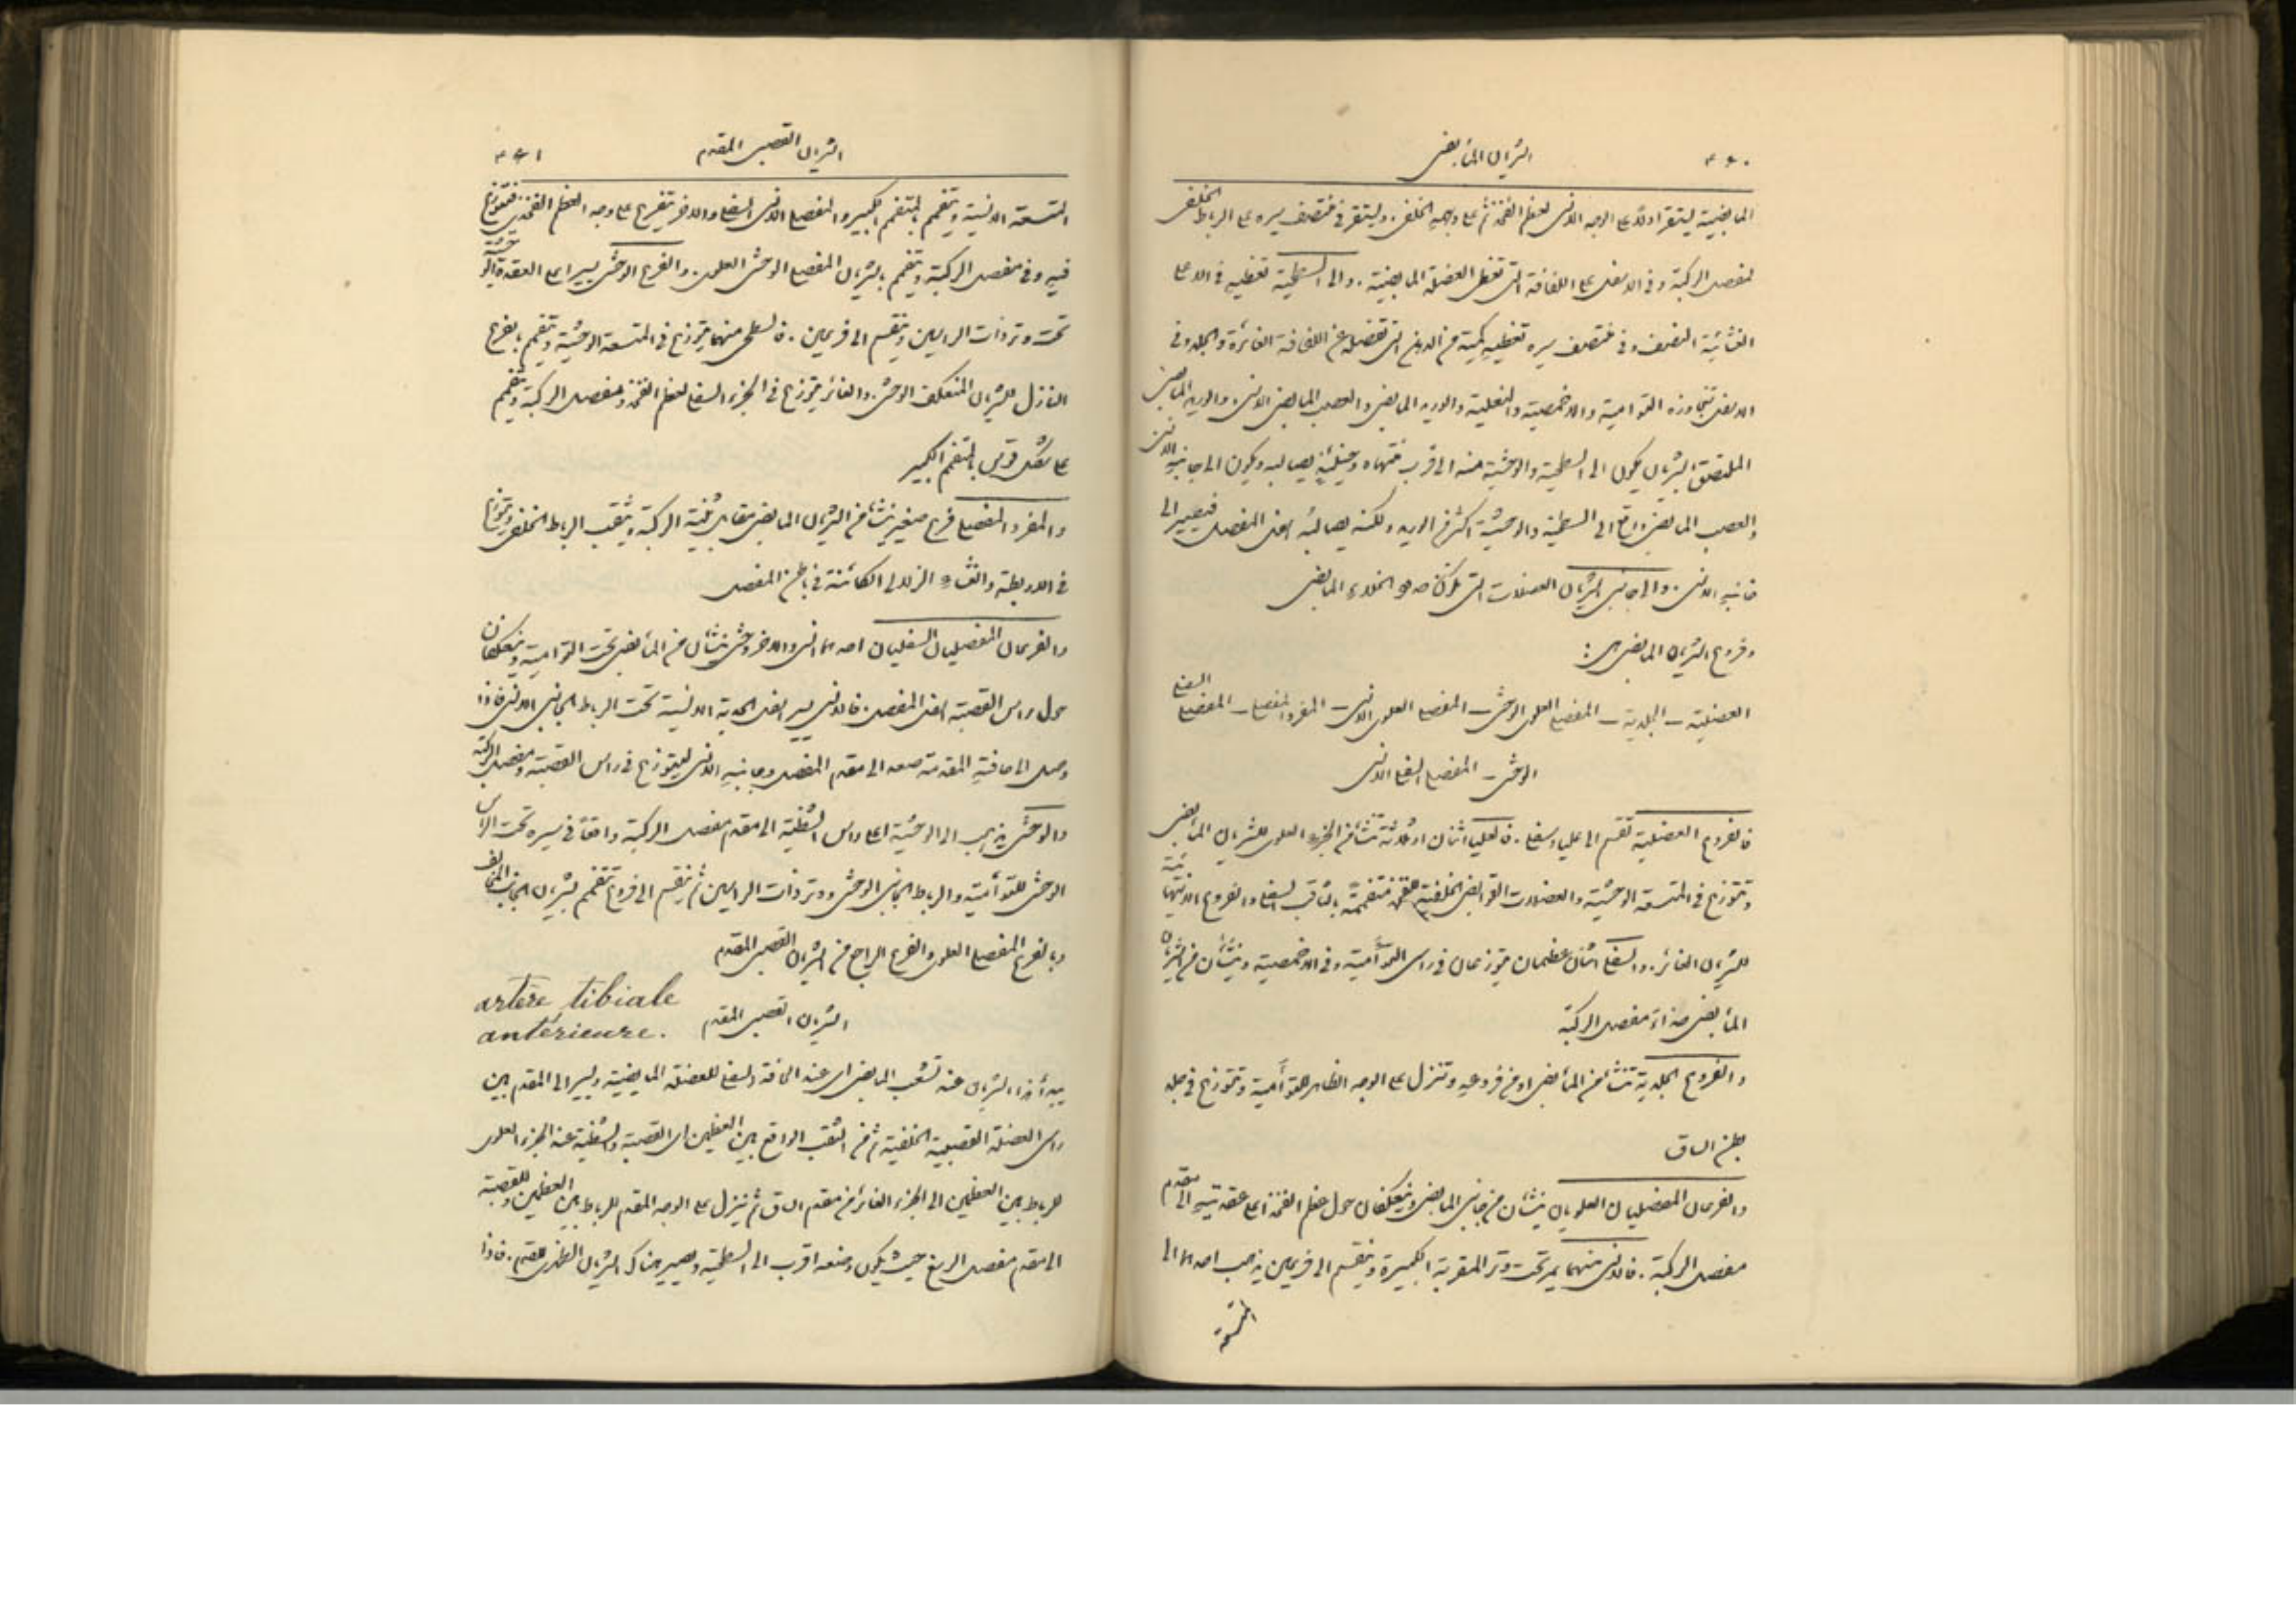 ٤٦٠ الشريان المأبضي
المابضية ليستقر اولاً على الوجه الانسي لعظم الفخذ ثم على وجهه الخلفي. وليستقر في منتصف سيره على الرباط الخلفي
لمفصل الركبة وفي الاسفل على اللفافة التي تغطي العضلة المابضية. والى السطحية تغطيه في الاعلى
الغشائية النصف وفي منتصف سيره تغطيه كمية من الدهن التي تفصله عن اللفافة الغائرة والجلد وفي
الاسفل تتجاوزه التوامية والاخمصية والنعلية والوريد المابضي والعصب المابضي الانسي. والوريد المابضي
الملتصق بالشريان يكون الى السطحية والوحشية منه الى قرب منتهاه وحينئذٍ يصالبه ويكون الى جانبه الانسي
والعصب المابضي واقع الى السطحية والوحشية اكثر من الوريد ولكنه يصالبه اسفل المفصل فيصير الى
جانبه الانسي. والى جانبي الشريان العضلات التي تكون حدود الخلاء المابضي
وفروع الشريان المابضي هي:
العضلية – الجلدية – المفصلي العلوي الوحشي – المفصلي العلوي الانسي – المفرد المفصلي – المفصلي السفلي
الوحشي – المفصلي السفلي الانسي
فالفروع العضلية تقسم الى عليا وسفلى. فالعليا اثنان او ثلاثة تنشأ من الجزء العلوي للشريان المأبضي
وتتوزع في المتسعة الوحشية والعضلات القوابض الخلفية للفخذ متفممة بالثاقب السفلي والفروع الانتهائية
للشريان الغائر. والسفلى اثنان عظيمان يتوزعان في راسي التوأمية وفي الاخمصية وينشأن من الشريان
المأبضي حذاء مفصل الركبة
والفروع الجلدية تنشأ من المأبضي او من فروعه وتنزل على الوجه الظاهر للتوأمية وتتوزع في جلد
بطن الساق
والفرعان المفصليان العلويان ينشأن من جانبي المابضي وينعكفان حول عظم الفخذ اعلى عقدتيه الى مقدم
مفصل الركبة. فالانسي منهما يمر تحت وتر المقربة الكبيرة وينقسم الى فرعين يذهب احدهما الى
المتسعة
الشريان القصبي المقدم ٤٦١
المتسعة الانسية ويتفمم بالمتفمم الكبير والمفصلي الانسي السفلي والاخر يتفرع على وجه العظم الفخذي فيتوزع
فيه وفي مفصل الركبة ويتفمم بالشريان المفصلي الوحشي العلوي. والفرع الوحشي يسير اعلى العقدة الوحشية
تحت وتر ذات الراسين وينقسم الى فرعين. فالسطحي منهما يتوزع في المتسعة الوحشية ويتفمم بالفرع
النازل للشريان المنعكف الوحشي. والغائر يتوزع في الجزء السفلي لعظم الفخذ ومفصل الركبة ويتفمم
على شكل قوس بالمتفمم الكبير
والمفرد المفصلي فرع صغير ينشأ من الشريان المابضي مقابل ثنية الركبة ويثقب الرباط الخلفي ويتوزع
في الاربطة والغشاء الزلالي الكائنة في باطن المفصل
والفرعان المفصليان السفليان احدهما انسي والاخر وحشي ينشأن من المأبضي تحت التوامية وينعكفان
حول راس القصبة اسفل المفصل. فالانسي يسير اسفل الحدبة الانسية تحت الرباط الجانبي الانسي فاذا
وصل الى حافته المقدمة صعد الى مقدم المفصل وجانبه الانسي ليتوزع في راس القصبة ومفصل الركبة
والوحشي يذهب الى الوحشية اعلى راس الشظية الى مقدم مفصل الركبة واقعًا في سيره تحت الراس
الوحشي للتوأمية والرباط الجانبي الوحشي ووتر ذات الراسين ثم ينقسم الى فروع تتفمم بشريان الجانب المخالف
وبالفرع المفصلي العلوي والفرع الراجع من الشريان القصبي المقدم
الشريان القصبي المقدم artère tibiale
antérieure.
يبدأ هذا الشريان عند تشعب المابضي اي عند الحافة السفلى للعضلة المابضية ويسير الى المقدم بين
راسي العضلة القصبية الخلفية ثم من الثقب الواقع بين العظمين اي القصبة والشظية عند الجزء العلوي
للرباط بين العظمين الى الجزء الغائر من مقدم الساق ثم ينزل على الوجه المقدم للرباط بين العظمين وللقصبة
الى مقدم مفصل الرسغ حيث يكون وضعه اقرب الى السطحية ويصير هناك الشريان الظهري للقدم. فاذا